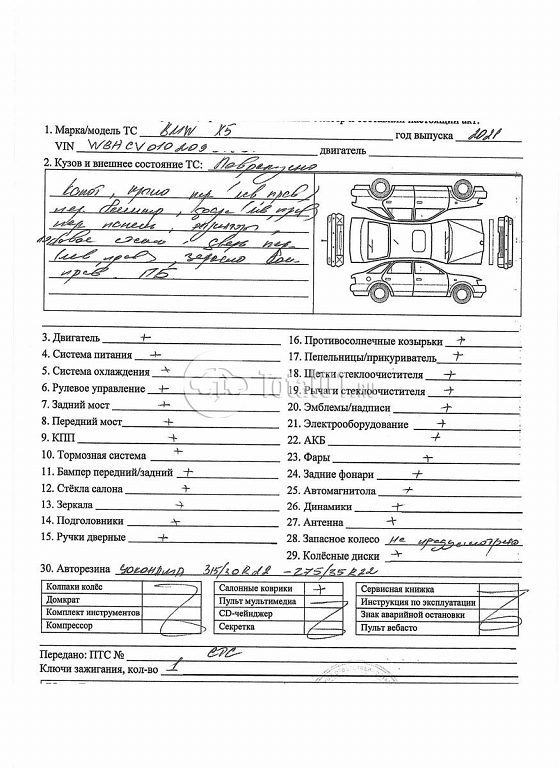 1. Марка/модель ТС BMW X5 год выпуска 2021
VIN WBACV010209 двигатель
2. Кузов и внешнее состояние ТС: Повреждено
Капот, крыло пер (лев прав)
пер. бампер, (лев прав)
пер панель,
лобовое стекло, дверь пер
(лев прав), зеркало
прав. ПБ
3. Двигатель +
4. Система питания +
5. Система охлаждения +
6. Рулевое управление +
7. Задний мост +
8. Передний мост +
9. КПП +
10. Тормозная система +
11. Бампер передний/задний +
12. Стёкла салона +
13. Зеркала +
14. Подголовники +
15. Ручки дверные +
16. Противосолнечные козырьки +
17. Пепельницы/прикуриватель +
18. Щетки стеклоочистителя +
19. Рычаги стеклоочистителя +
20. Эмблемы/надписи +
21. Электрооборудование +
22. АКБ +
23. Фары +
24. Задние фонари +
25. Автомагнитола +
26. Динамики +
27. Антенна +
28. Запасное колесо не предусмотрено
29. Колёсные диски +
Total01.ru
30. Авторезина YOKOHAMA 315/30R22 - 275/35R22
Колпаки колёс
Домкрат
Комплект инструментов
Компрессор
Салонные коврики +
Пульт мультимедиа
CD-чейнджер
Секретка
Сервисная книжка
Инструкция по эксплуатации
Знак аварийной остановки
Пульт вебасто
Передано: ПТС № СТС
Ключи зажигания, кол-во 1